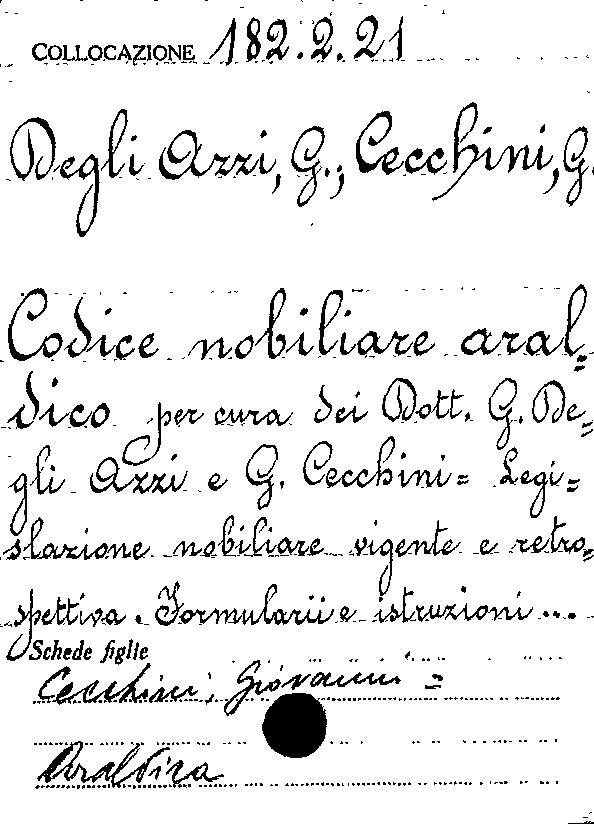 COLLOCAZIONE 182.2.21
Degli Azzi, G.; Cecchini, G.
Codice nobiliare aral=
dico per cura dei Dott. G. De=
gli Azzi e G. Cecchini = Legi=
slazione nobiliare vigente e retro=
spettiva. Formularii e istruzioni ...
Schede figlie
Cecchini, Giovanni =
Araldica